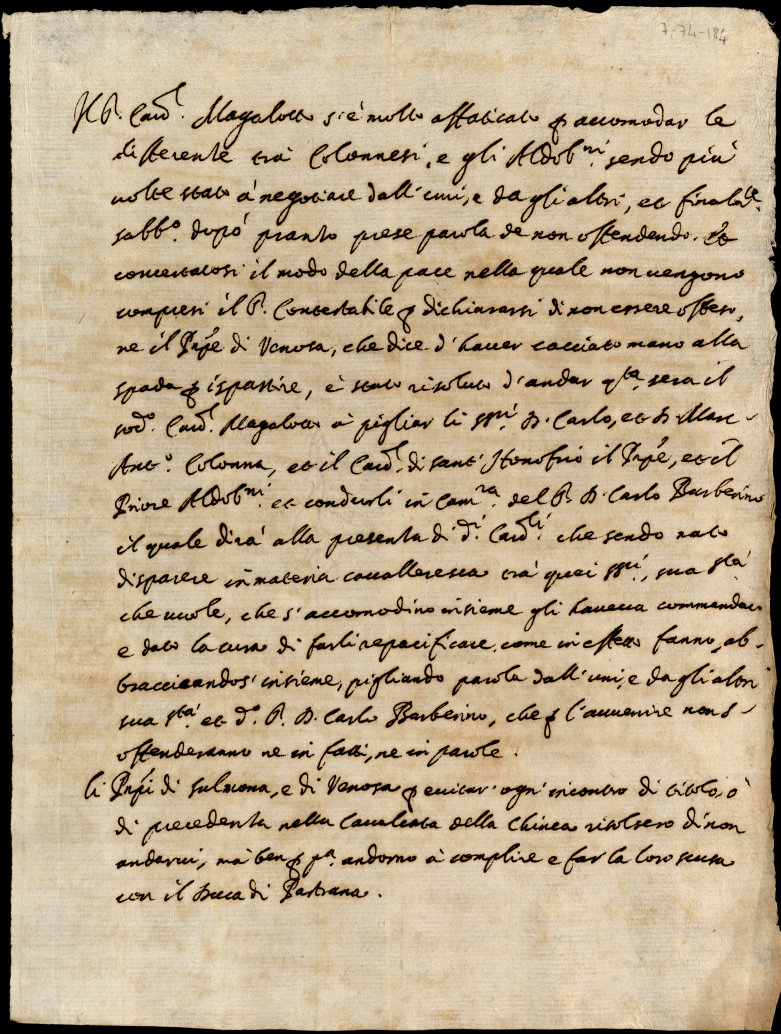 7.74-184
Il S.r Card.l Magalotto s'è molto affaticato p accomodar le
differenze trà Colonnesi, e gli Aldob.ni sendo più
uolte stato à negotiare dall'uni, e dagli altri, et finalm.te
sabb.o dopò pranzo prese parola de non offendendo. Et
concertatosi il modo della pace nella quale non uengono
compresi il S. Contestabile p dichiararsi di non essere offeso,
ne il Prpē di Venosa, che dice d'hauer cacciato mano alla
spada p ispartire, è stato risoluto d'andar q.ta sera il
sod.o Card.l Magalotto à pigliar li SS.ri D. Carlo, et D. Marc
Ant.o Colonna, et il Card.l di sant'Honofrio il Prpē, et il
Priore Aldob.ni et condurli in Cam.ra del S. D. Carlo Barberino
il quale dirà alla presenza di d.i Card.li che sendo nato
disparere in materia caualleresca trà quei SS.ri, sua S.tà
che uuole, che s'accomodino insieme gli haueua commandato
e dato la cura di farli repacificare, come in effetto fanno, ab-
bracciandos' insieme, pigliando parola dall'uni, e dagli altri
sua S.tà et d.o S. D. Carlo Barberino, che p l'auuenire non s-
offenderanno ne in fatti, ne in parole.
li Prpi di Sulmona, e di Venosa p euitar ogni incontro di titolo, ò
di precedenza nella Caualcata della Chinea risolsero di non
andarui, mà ben p p.a andorno à complire e far la loro scusa
con il Duca di Pastrana.